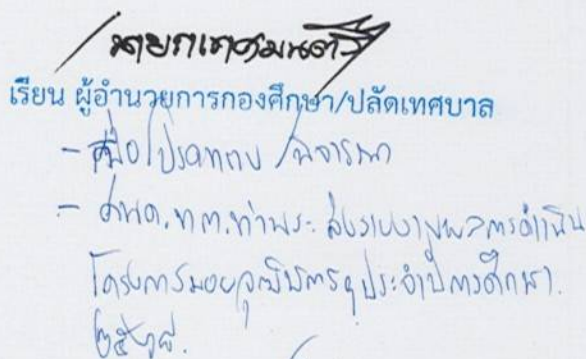 /นายกเทศมนตรี
เรียน ผู้อำนวยการกองศึกษา/ปลัดเทศบาล
- เพื่อโปรดทราบ/พิจารณา
- ศพด.ทต.ท่าพระ ส่งรายงานผลการดำเนิน
โครงการมอบวุฒิบัตรฯประจำปีการศึกษา